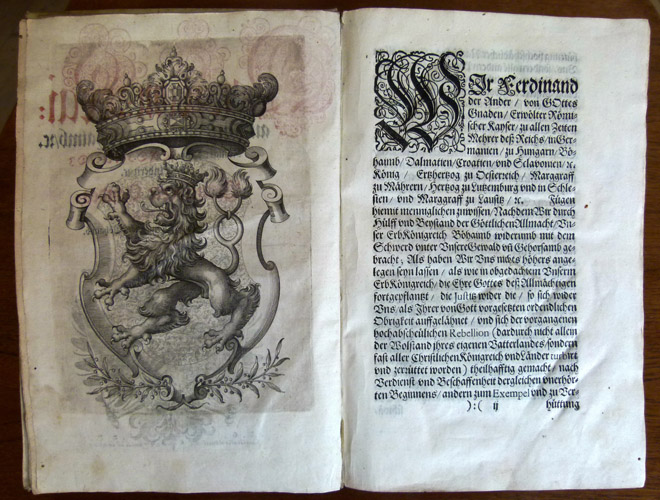 WIr Ferdinand
der Ander / von GOttes
Gnaden / Erwölter Römi-
scher Kayser / zu allen Zeiten
Mehrer deß Reichs / in Ger-
manien / zu Hungarn / Bö-
haimb / Dalmatien / Croatien / und Sclavonien / ꝛc.
König / Ertzhertzog zu Oesterreich / Marggraff
zu Mährern / Hertzog zu Lutzenburg und in Schle-
sien / und Marggraff zu Lausitz / ꝛc. Fügen
hiemit menniglichen zuwissen / Nachdem Wir durch
Hülff und Beystand der Göttlichen Allmacht / Vn-
ser ErbKönigreich Böhaimb widerumb mit dem
Schwerd vnter Vnser Gewald vñ Gehorsamb ge-
bracht / Als haben Wir Vns nichts höhers ange-
legen seyn lassen / als wie in obgedachtem Vnserm
ErbKönigreich / die Ehre Gottes deß Allmächtigen
fortgepflantzt / die Justitz wider die / so sich wider
Vns / als Jhrer von Gott vorgesetzten ordendlichen
Obrigkeit auffgelähnet / und sich der vorgangenen
hochabscheulichen Rebellion (dardurch nicht allein
der Wolstand jhres eigenen Vatterlandes / sondern
fast aller Christlichen Königreich vnd Länder turbirt
und zerrüttet worden) theilhafftig gemacht / nach
Verdienst und Beschaffenheit dergleichen vnerhör-
ten Beginnens / andern zum Exempel und zu Ver-
):( ij hüttung